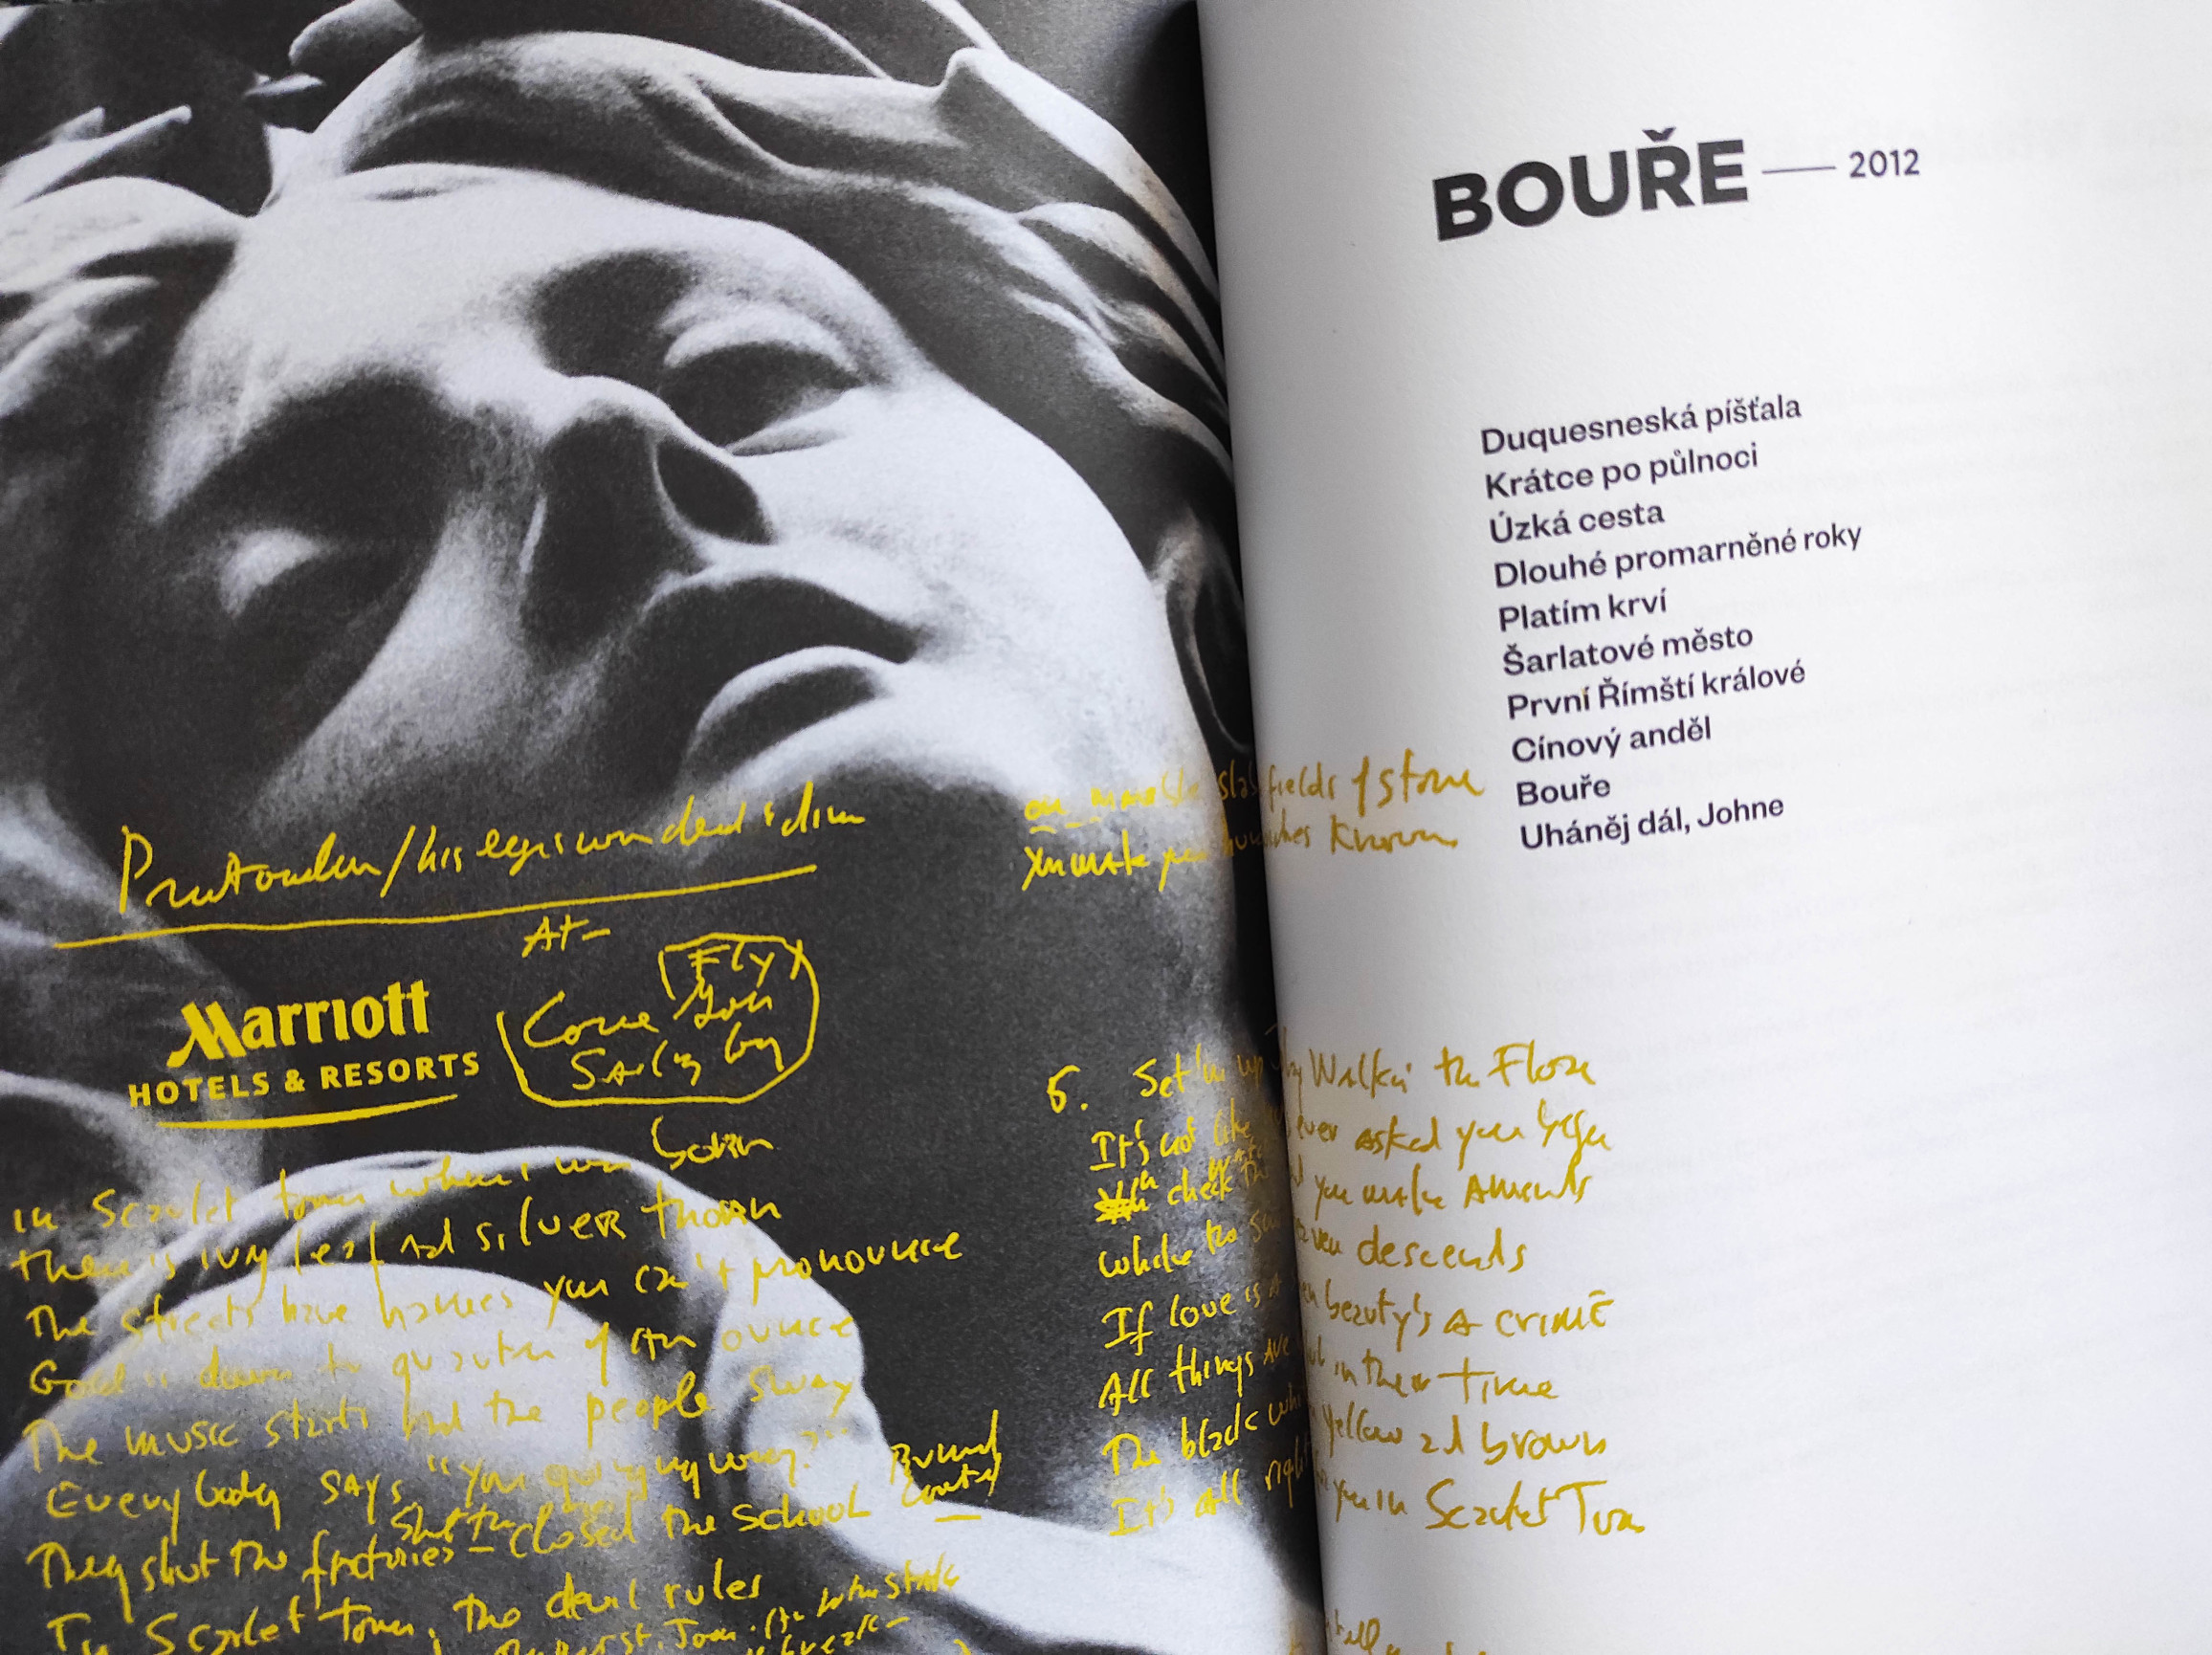 At-
Fly
Come You
Sail by
Marriott
HOTELS & RESORTS
In Scarlet town when I was born
There's ivy leaf and silver thorn
The streets have names you can't pronounce
Gold is down to quarter of an ounce
The music starts and the people sway
Everybody says "you going my way?"
Shut the
They shut the factories - closed the school
In Scarlet town, the devil rules
slab fields of stone
known
5. Set 'em up Walkin' the Floor
It's not like ever asked you
check you make Amends
While the descends
If love is a beauty's a crime
All things are in their time
The black yellow and brown
It's all right you in Scarlet Town
BOUŘE — 2012
Duquesneská píšťala
Krátce po půlnoci
Úzká cesta
Dlouhé promarněné roky
Platím krví
Šarlatové město
První Římští králové
Cínový anděl
Bouře
Uháněj dál, Johne